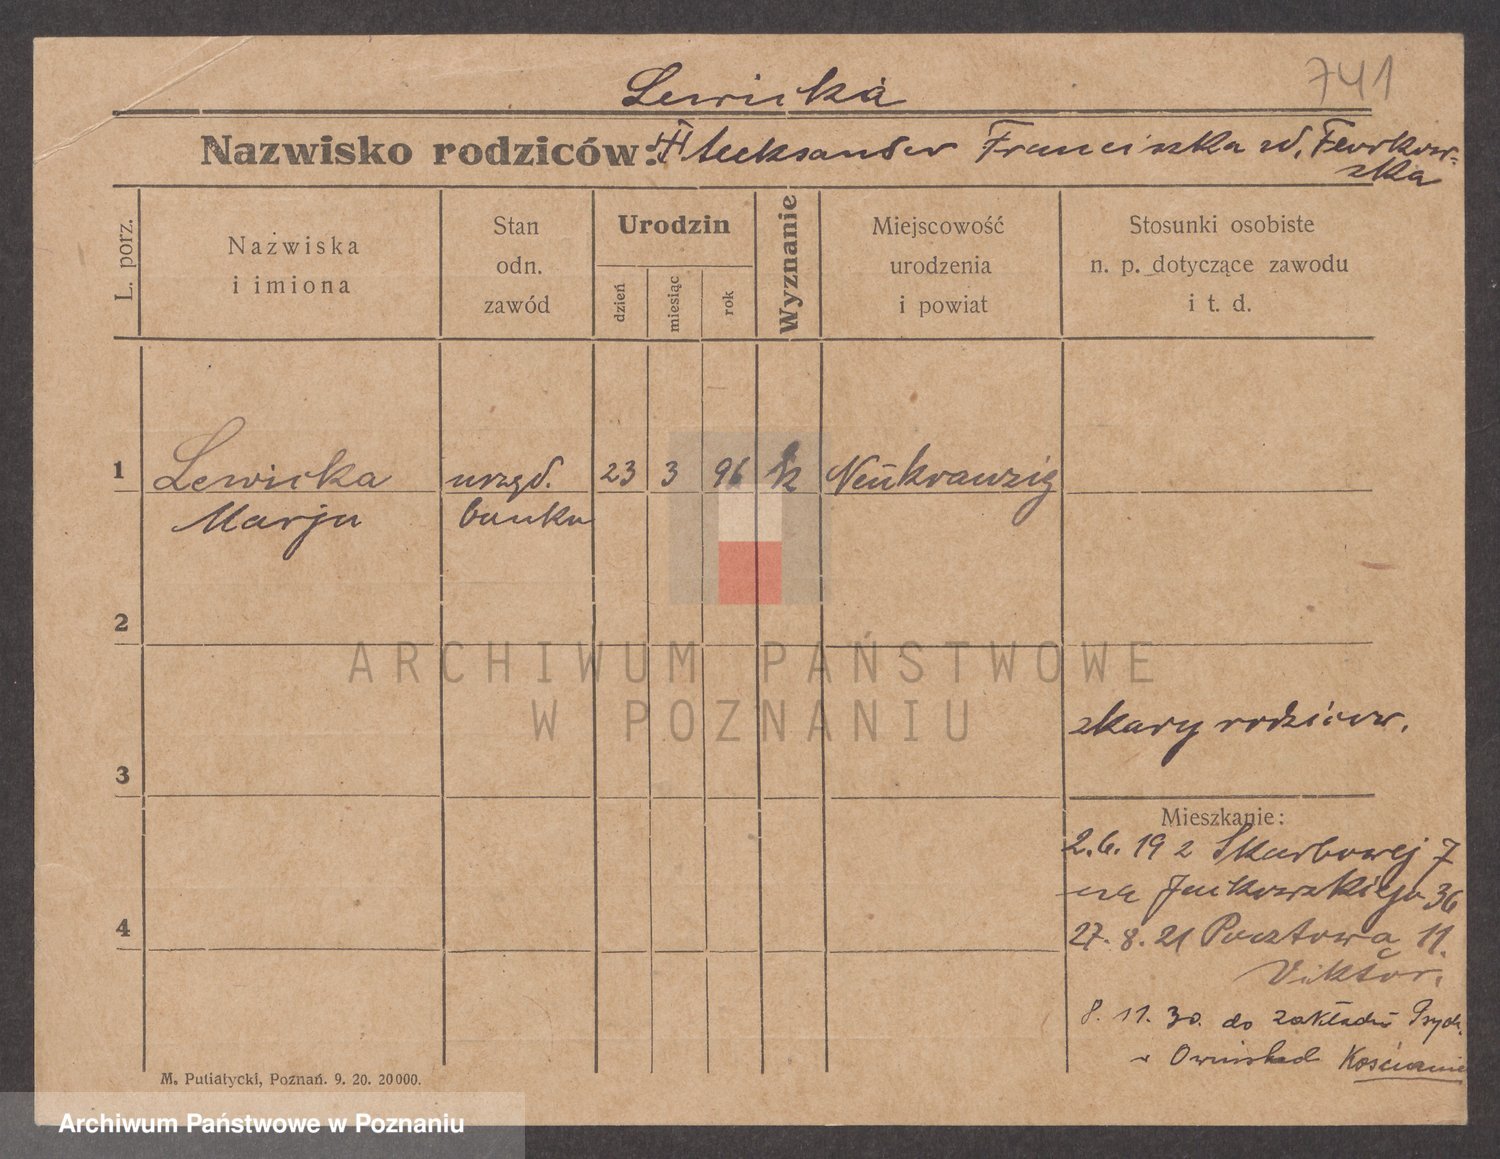 741
Lewicka
Nazwisko rodziców: Aleksander Franciszka
L. porz.
Nazwiska i imiona
Stan odn. zawód
Urodzin
dzień
miesiąc
rok
Wyznanie
Miejscowość urodzenia i powiat
Stosunki osobiste n. p. dotyczące zawodu i t. d.
1 Lewicka urzęd. 23 3 96 k Neukranzig
Marja banku
2
ARCHIWUM PAŃSTWOWE
W POZNANIU
rodziców.
3
Mieszkanie:
2.6.19 z Skarbowej 7
na Jackowskiego 36
4
27.8.21 Pocztowa 11.
Viktor.
8.11.30. do zakładu Psych.
w Kościanie
M. Putiatycki, Poznań. 9. 20. 20000.
Archiwum Państwowe w Poznaniu